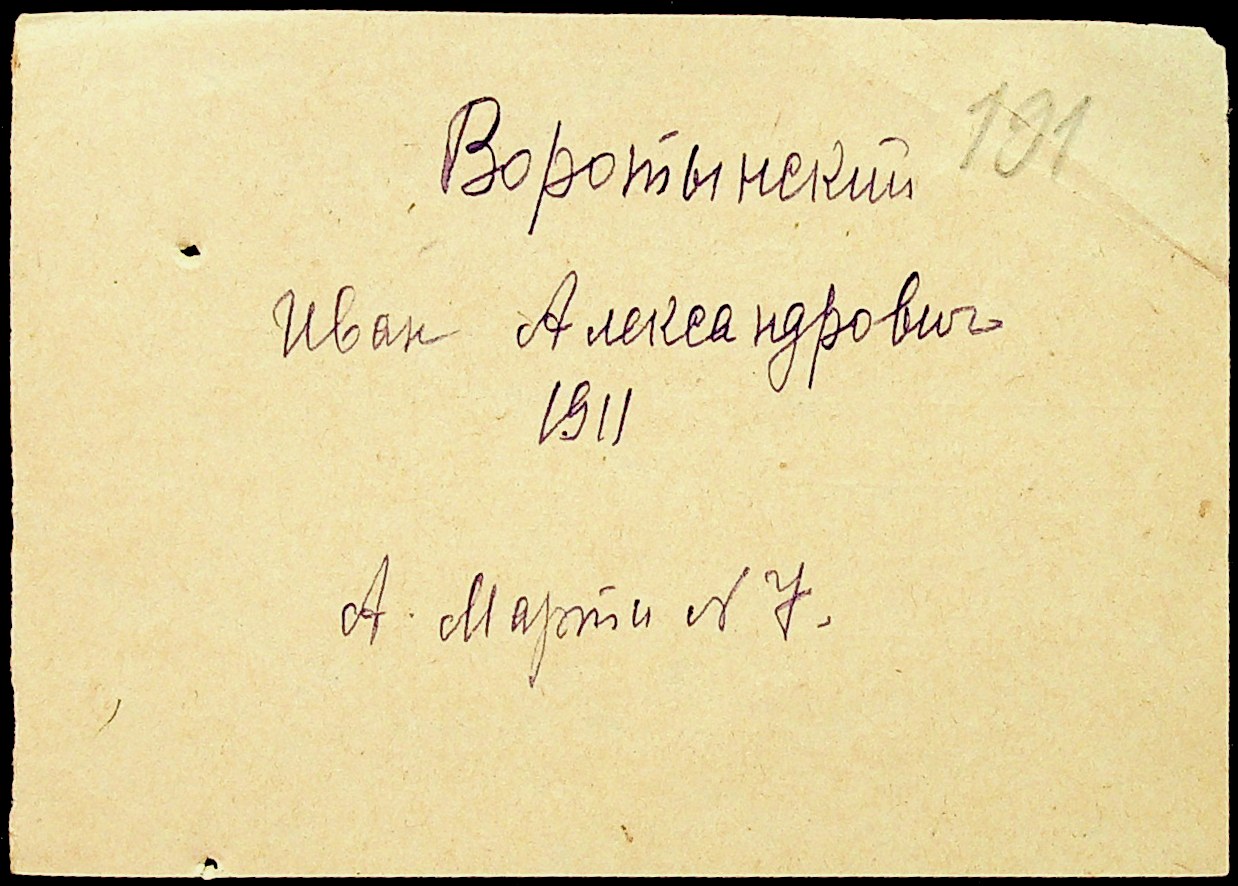 Воротынский
191
Иван Александрович
1911
А. Марти № 7.